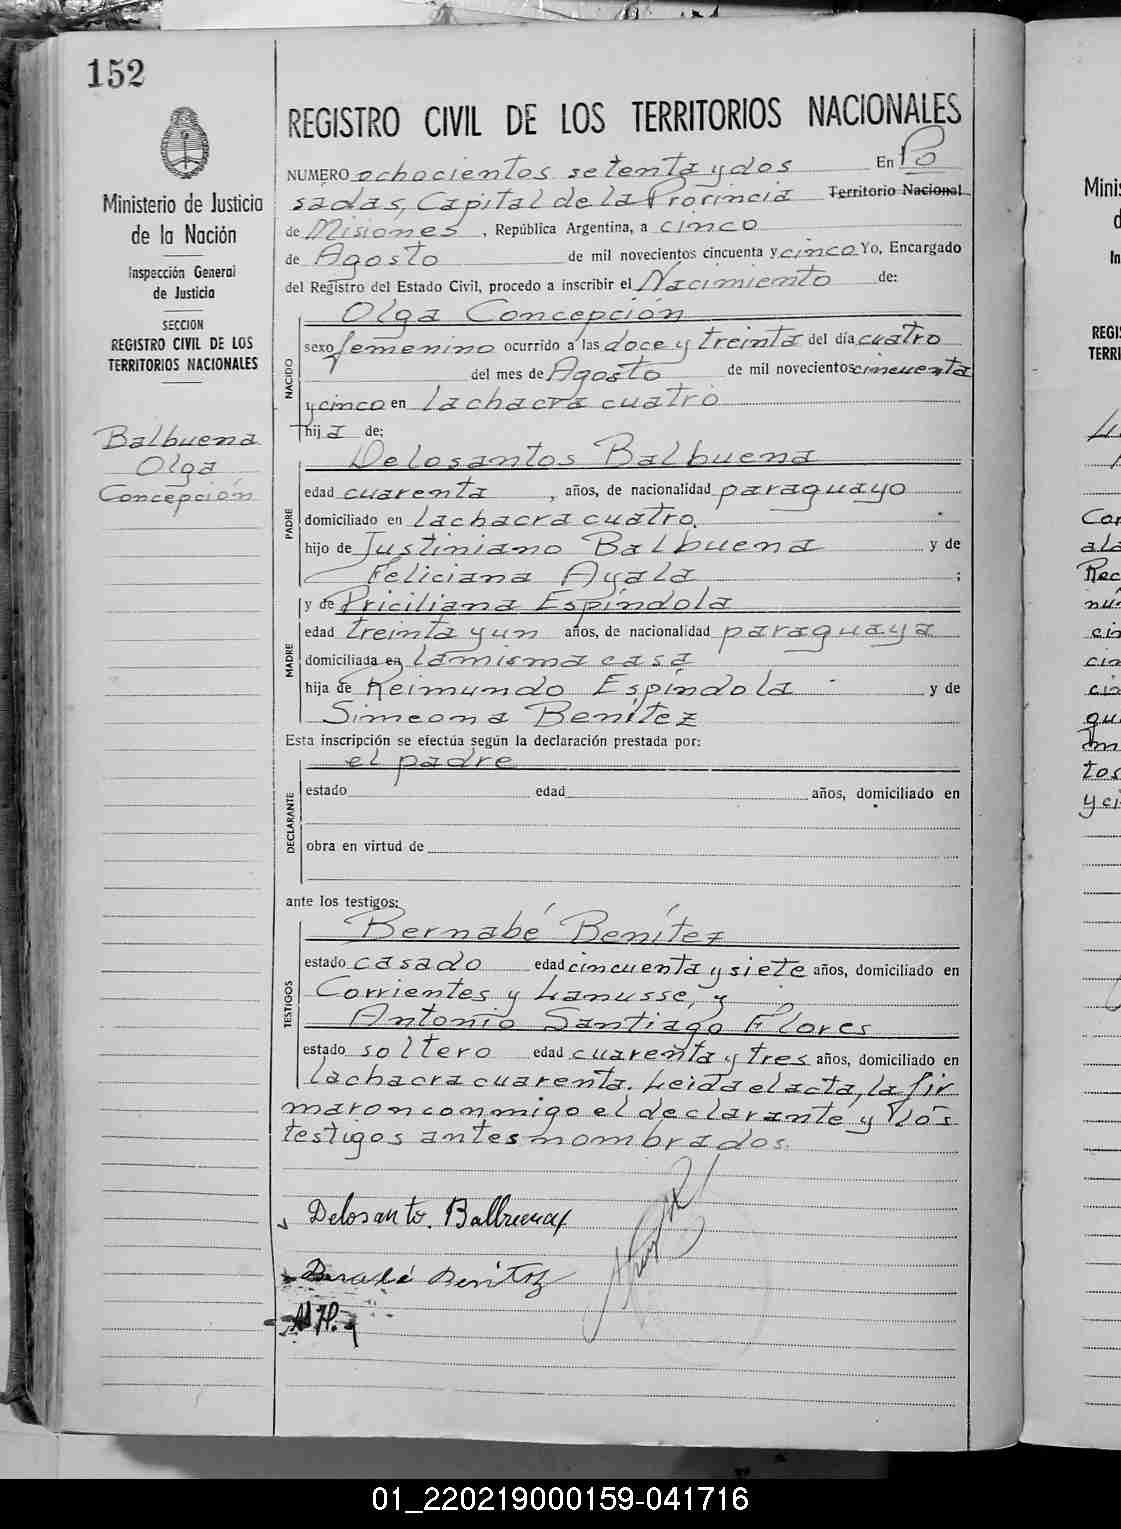 152
Ministerio de Justicia
de la Nación
Inspección General
de Justicia
SECCION
REGISTRO CIVIL DE LOS
TERRITORIOS NACIONALES
Balbuena
Olga
Concepción
REGISTRO CIVIL DE LOS TERRITORIOS NACIONALES
NUMERO ochocientos setenta y dos En Po
sadas, Capital de la Provincia Territorio Nacional
de Misiones, República Argentina, a cinco
de Agosto de mil novecientos cincuenta y cinco Yo, Encargado
del Registro del Estado Civil, procedo a inscribir el Nacimiento de:
NACIDO
Olga Concepción
sexo femenino ocurrido a las doce y treinta del día cuatro
del mes de Agosto de mil novecientos cincuenta
y cinco en la chacra cuatro
hija de:
PADRE
Delosantos Balbuena
edad cuarenta, años, de nacionalidad paraguayo
domiciliado en la chacra cuatro.
hijo de Justiniano Balbuena y de
Feliciana Ayala ;
MADRE
y de Priciliana Espíndola
edad treinta y un años, de nacionalidad paraguaya
domiciliada en la misma casa
hija de Reimundo Espíndola y de
Simeona Benítez
Esta inscripción se efectúa según la declaración prestada por:
DECLARANTE
el padre
estado edad años, domiciliado en
obra en virtud de
ante los testigos:
TESTIGOS
Bernabé Benítez
estado casado edad cincuenta y siete años, domiciliado en
Corrientes y Lanusse, y
Antonio Santiago Flores
estado soltero edad cuarenta y tres años, domiciliado en
la chacra cuarenta. Leida el acta, la fir
maron conmigo el declarante y los
testigos antes nombrados.
Delosanto. Balbuena
Bernabé Benitez
Minis
REGIS
TERRI
Rec
tos
y ci
01_220219000159-041716